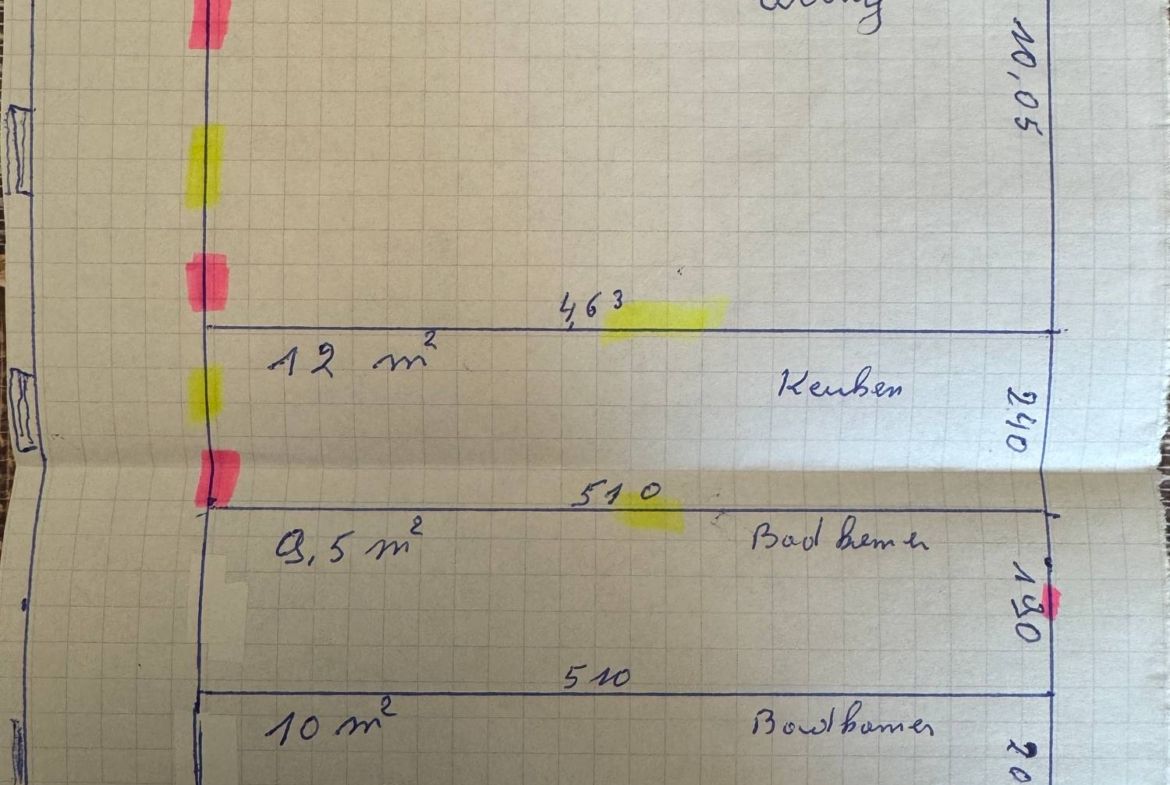 10,05
4,63
12 m²
Keuken
240
510
9,5 m²
Badkamer
190
510
10 m²
Badkamer